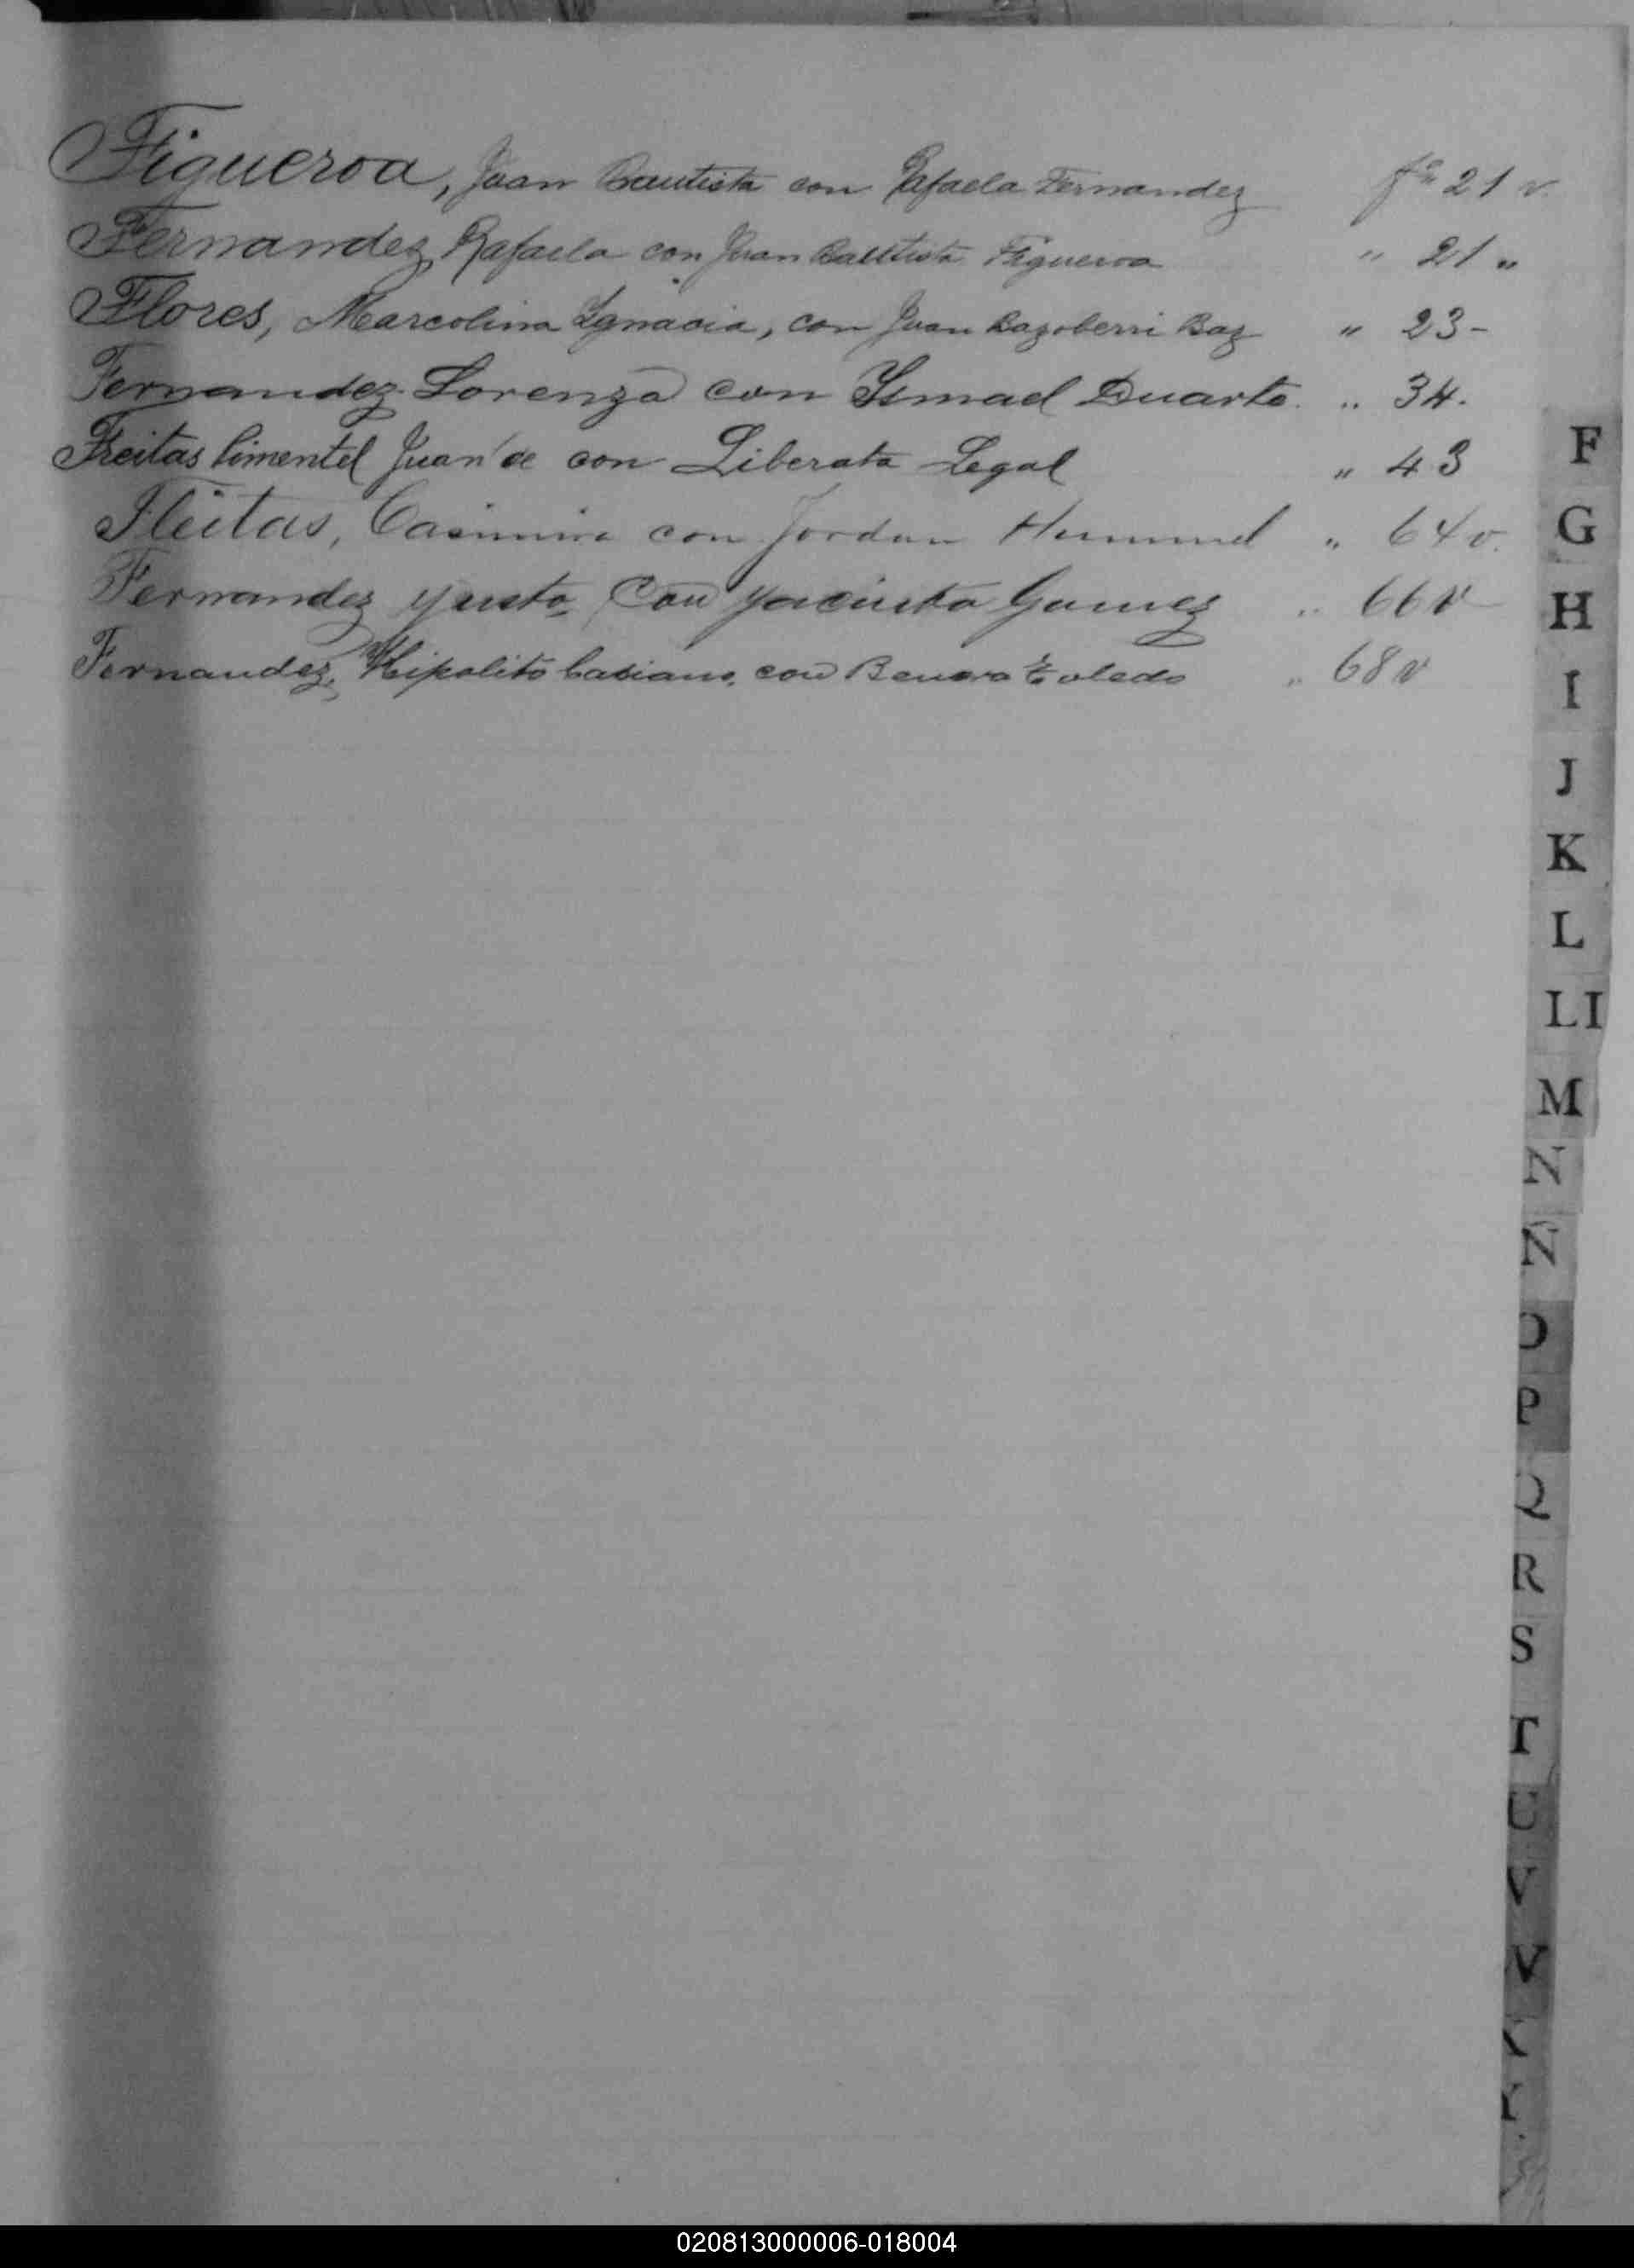 Figueroa, Juan Bautista con Rafaela Fernandez fº 21 v.
Fernandez, Rafaela con Juan Bautista Figueroa " 21 "
Flores, Marcolina Ygnacia, con Juan Bazoberri Baz " 23-
Fernandez Lorenza con Ysmael Duarte. " 34.
Freitas Pimentel Juan de con Liberata Legal " 43
Fleitas, Casimira con Jordan Hummel " 64 v.
Fernandez Yusto, Con Yacinta Gomez " 66 v
Fernandez, Hipolito Casiano, con Toledo " 68 v
F
G
H
I
J
K
L
LI
M
N
Ñ
O
P
Q
R
S
T
U
V
V
Y
020813000006-018004